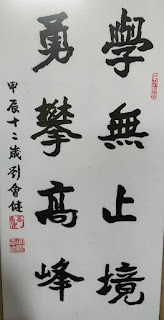 學無止境
勇攀高峰
甲辰十二歲劉會健